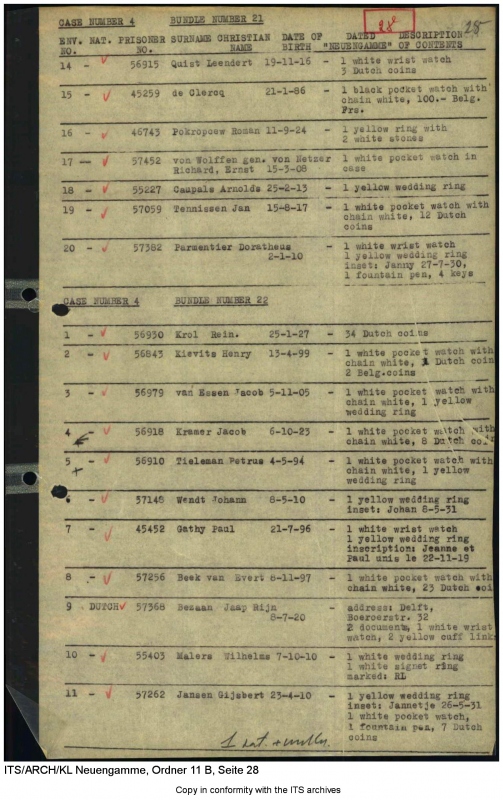 28
28
CASE NUMBER 4 BUNDLE NUMBER 21
ENV. NAT. PRISONER SURNAME CHRISTIAN DATE OF DATED DESCRIPTION
NO. NO. NAME BIRTH "NEUENGAMME" OF CONTENTS
14 - 56915 Quist Leendert 19-11-16 - 1 white wrist watch
3 Dutch coins
15 - 45259 de Clercq 21-1-86 - 1 black pocket watch with
chain white, 100.- Belg.
Frs.
16 - 46743 Pokropcew Roman 11-9-24 - 1 yellow ring with
2 white stones
17 - 57452 von Wolffen gen. von Netzer 1 white pocket watch in
Richard, Ernst 15-3-08 case
18 - 55227 Caupals Arnolds 25-2-13 - 1 yellow wedding ring
19 - 57059 Tennissen Jan 15-8-17 - 1 white pocket watch with
chain white, 12 Dutch
coins
20 - 57382 Parmentier Doratheus - 1 white wrist watch
2-1-10 1 yellow wedding ring
inset: Janny 27-7-30,
1 fountain pen, 4 keys
CASE NUMBER 4 BUNDLE NUMBER 22
1 - 56930 Krol Rein. 25-1-27 - 34 Dutch coins
2 - 56843 Kievits Henry 13-4-99 - 1 white pocket watch with
chain white, 1 Dutch coin
2 Belg.coins
3 - 56979 van Essen Jacob 5-11-05 - 1 white pocket watch with
chain white, 1 yellow
wedding ring
4 - 56918 Kramer Jacob 6-10-23 - 1 white pocket watch with
chain white, 8 Dutch coi
5 - 56910 Tieleman Petrus 4-5-94 - 1 white pocket watch with
chain white, 1 yellow
wedding ring
- 57148 Wendt Johann 8-5-10 - 1 yellow wedding ring
inset: Johan 8-5-31
7 - 45452 Gathy Paul 21-7-96 - 1 white wrist watch
1 yellow wedding ring
inscription: Jeanne et
Paul unis le 22-11-19
8 - 57256 Beek van Evert 8-11-97 - 1 white pocket watch with
chain white, 23 Dutch coi
9 DUTCH 57368 Bezaan Jaap Rijn - address: Delft,
8-7-20 Boeroerstr. 32
2 documents, 1 white wrist
watch, 2 yellow cuff link
10 - 55403 Malers Wilhelms 7-10-10 - 1 white wedding ring
1 white signet ring
marked: RL
11 - 57262 Jansen Gijsbert 23-4-10 - 1 yellow wedding ring
inset: Jannetje 26-5-31
1 white pocket watch,
1 fountain pen, 7 Dutch
coins
ITS/ARCH/KL Neuengamme, Ordner 11 B, Seite 28
Copy in conformity with the ITS archives